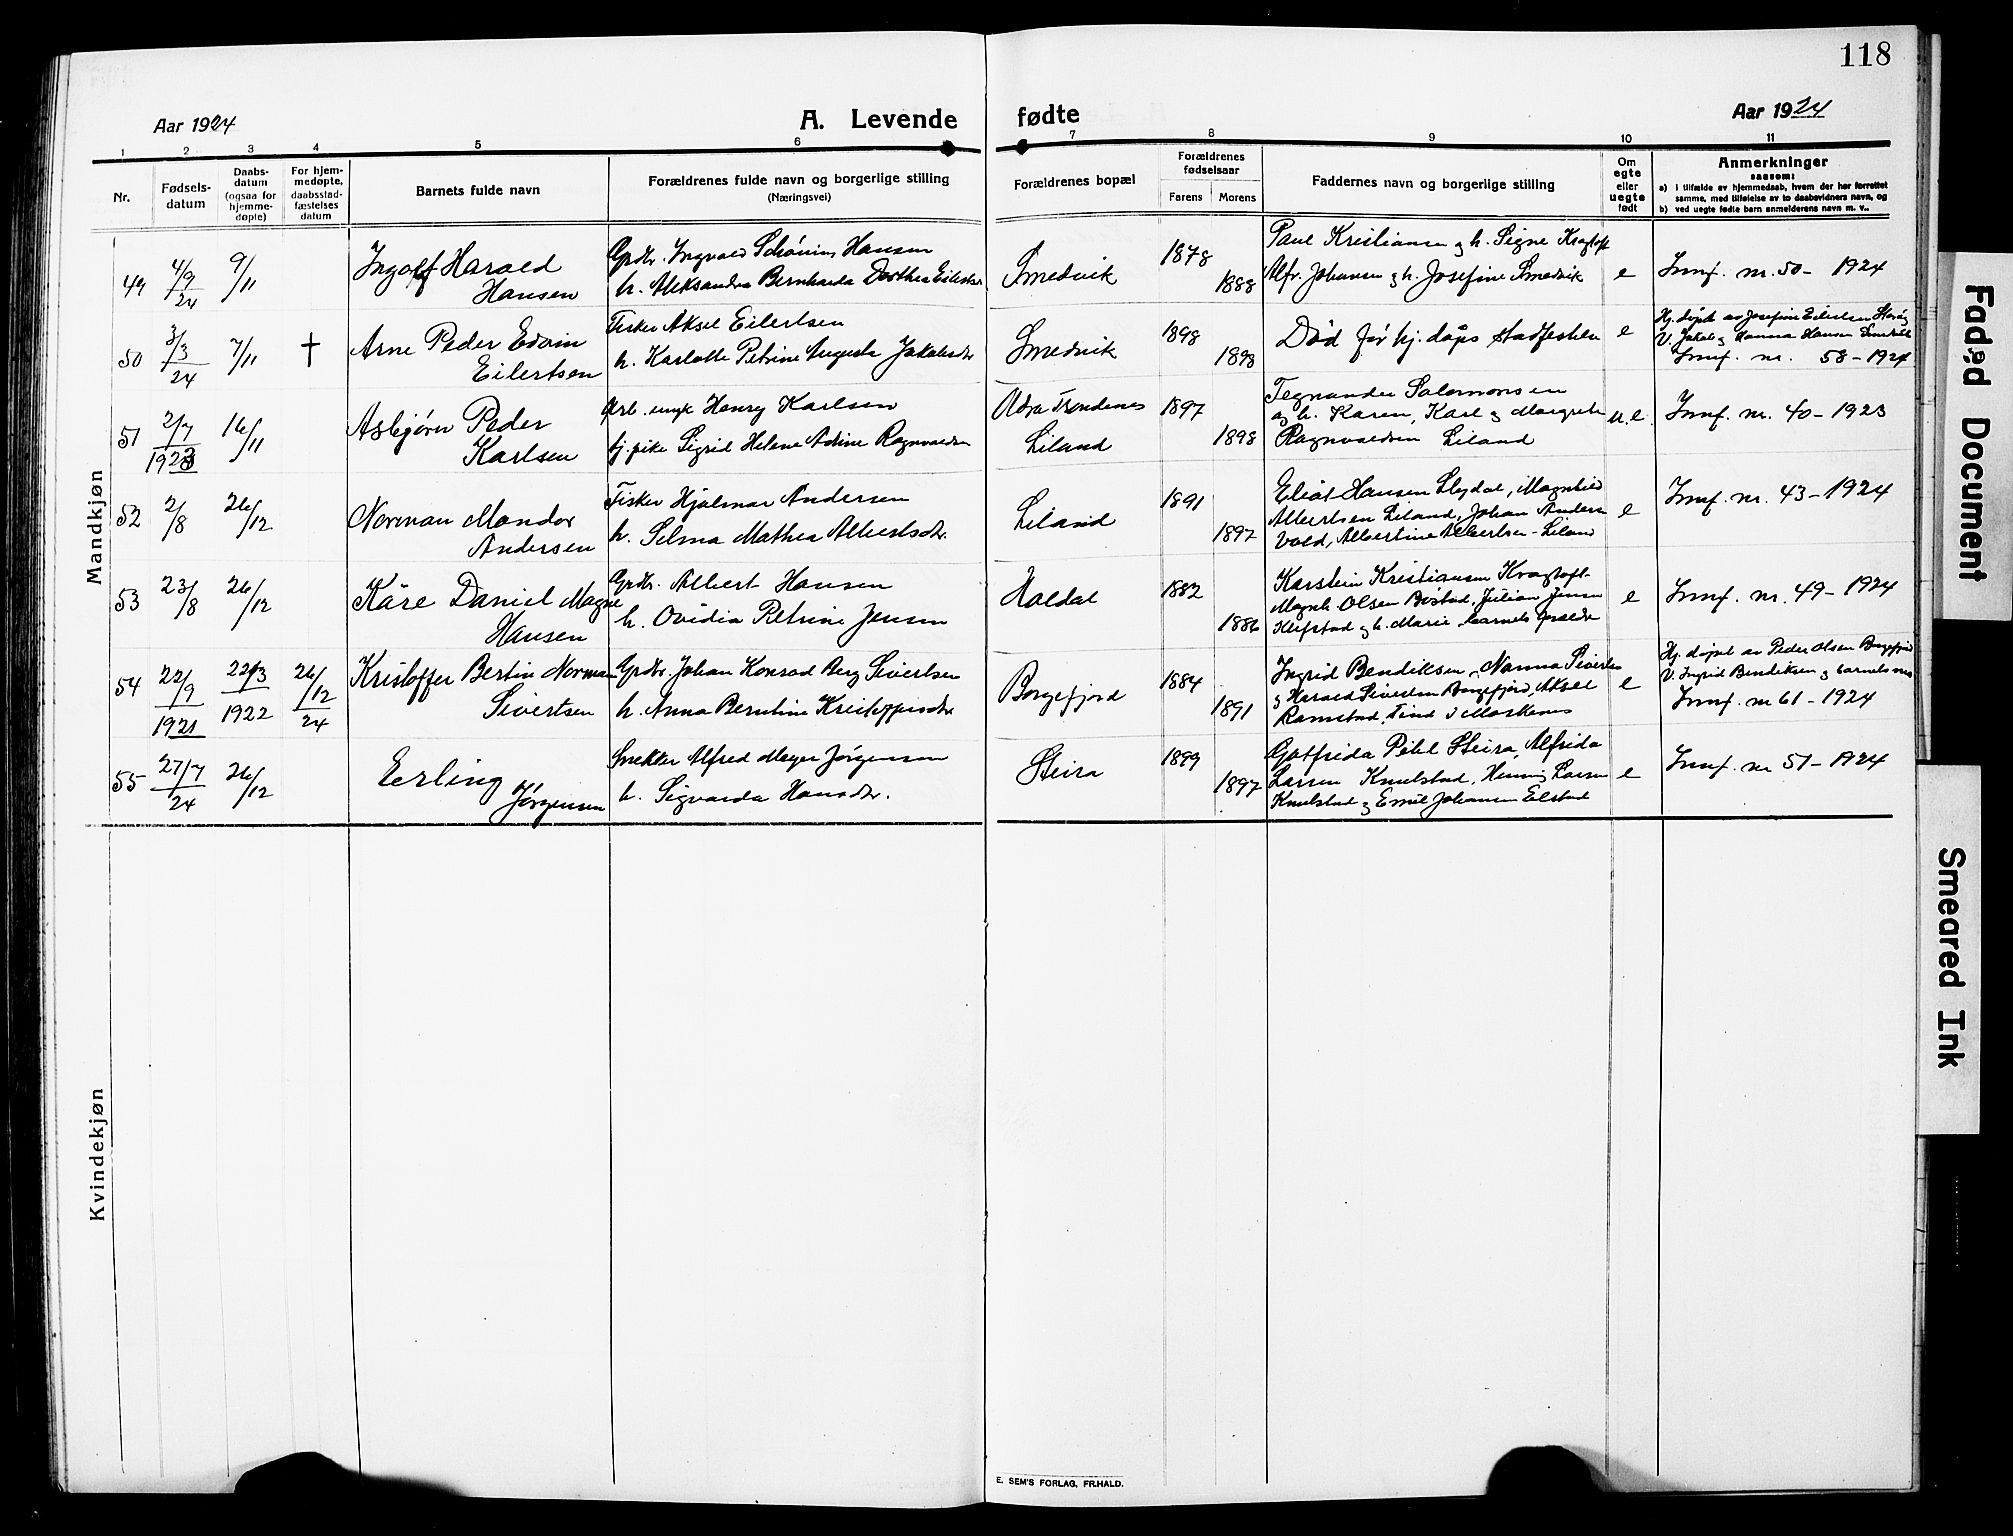 118
Aar 1924
A. Levende
fødte
Aar 1924
1 2 3 4 5 6
7 8 9 10 11
Nr.
Fødsels-
datum
Daabs-
datum
(ogsaa for
hjemme-
døpte)
For hjem-
medøpte,
daabsstad-
fæstelses
datum
Barnets fulde navn
Forældrenes fulde navn og borgerlige stilling
(Næringsvei)
Forældrenes bopæl
Forældrenes
fødselsaar
Farens Morens
Faddernes navn og borgerlige stilling
Om
egte
eller
uegte
født
Anmerkninger
saasom:
a) i tilfælde av hjemmedaab, hvem der har forrettet
samme, med tilføielse av to daabsvidners navn, og
b) ved uegte fødte barn anmelderens navn m. v..
Mandkjøn
49
4/9
24
9/11
Ingolf Harald
Hansen
Grdbr. Ingvald Schøning Hansen
h. Aleksandra Bernharda Dorthea Eilertsdr
Smedvik
1878
1888
Paul Kristiansen og h. Signe Kragtoft
Alfr. Johansen og h. Josefine Smedvik
e
Innf. nr. 50 - 1924
50
3/3
24
7/11
†
Arne Peder Edvin
Eilertsen
Fisker Aksel Eilertsen
h. Karlotte Petrine Augusta Jakobsdr
Smedvik
1898
1898
Død før hj. dåps stadfestelse
e
Hj. døpt av Josefine Eilertsen
V. Jakob og Hanna Hansen Smedvik
Innf. nr. 58 - 1924
51
2/7
1923
16/11
Asbjørn Peder
Karlsen
Arb. ungk Henry Karlsen
tj. pike Sigrid Helene Adine Ragnvaldsen
Adra Trondenes
Liland
1897
1898
Tegnander Salomonsen
og h. Karen, Karl og Margrete
Ragnvaldsen Liland
u.e.
Innf. nr. 40 - 1923
52
2/8
26/12
Norman Mandor
Andersen
Fisker Hjalmar Andersen
h. Selma Mathea Albertsdr.
Liland
1891
1897
Eliot Hansen Slydal, Magnhild
Albertsen Liland, Johan Anders
Vold, Albertine Albertsen - Liland
e
Innf. nr. 43 - 1924
53
23/8
26/12
Kåre Daniel Magne
Hansen
Grdbr. Albert Hansen
h. Ovidia Petrine Jensen
Haldal
1882
1886
Karstein Kristiansen Kragtoft
Magnh. Olsen Bøstad, Julian Jensen
Klefstad og h. Marie, barnets foreldre
e
Innf. nr. 49 - 1924
54
22/9
1921
22/3
1922
26/12
24
Kristoffer Bertin Norman
Sivertsen
Grdbr. Johan Konrad Berg Sivertsen
h. Anna Berntine Kristoffersdtr
Borgefjord
1884
1891
Ingrid Bendiksen, Nanna Sivertsen
og Harald Sivertsen Borgefjord, Aksel
Ramstad, Tind i Moskenes
e
Hj. døpt av Peder Olsen Borgefjord
V. Ingrid Bendiksen og barnets mor
Innf. nr 61 - 1924
55
27/7
24
26/12
Erling
Jørgensen
Snekker Alfred Meyer Jørgensen
h. Sigvarda Hansdtr.
Steira
1899
1897
Gotfrida Pihl Steira, Alfrida
Larsen Knutstad, Henning Larsen
Knutstad og Emil Johansen Elstad
e
Innf. nr 51 - 1924
Kvindekjøn
E. SEM'S FORLAG, FR.HALD.
Faded Document
Smeared Ink